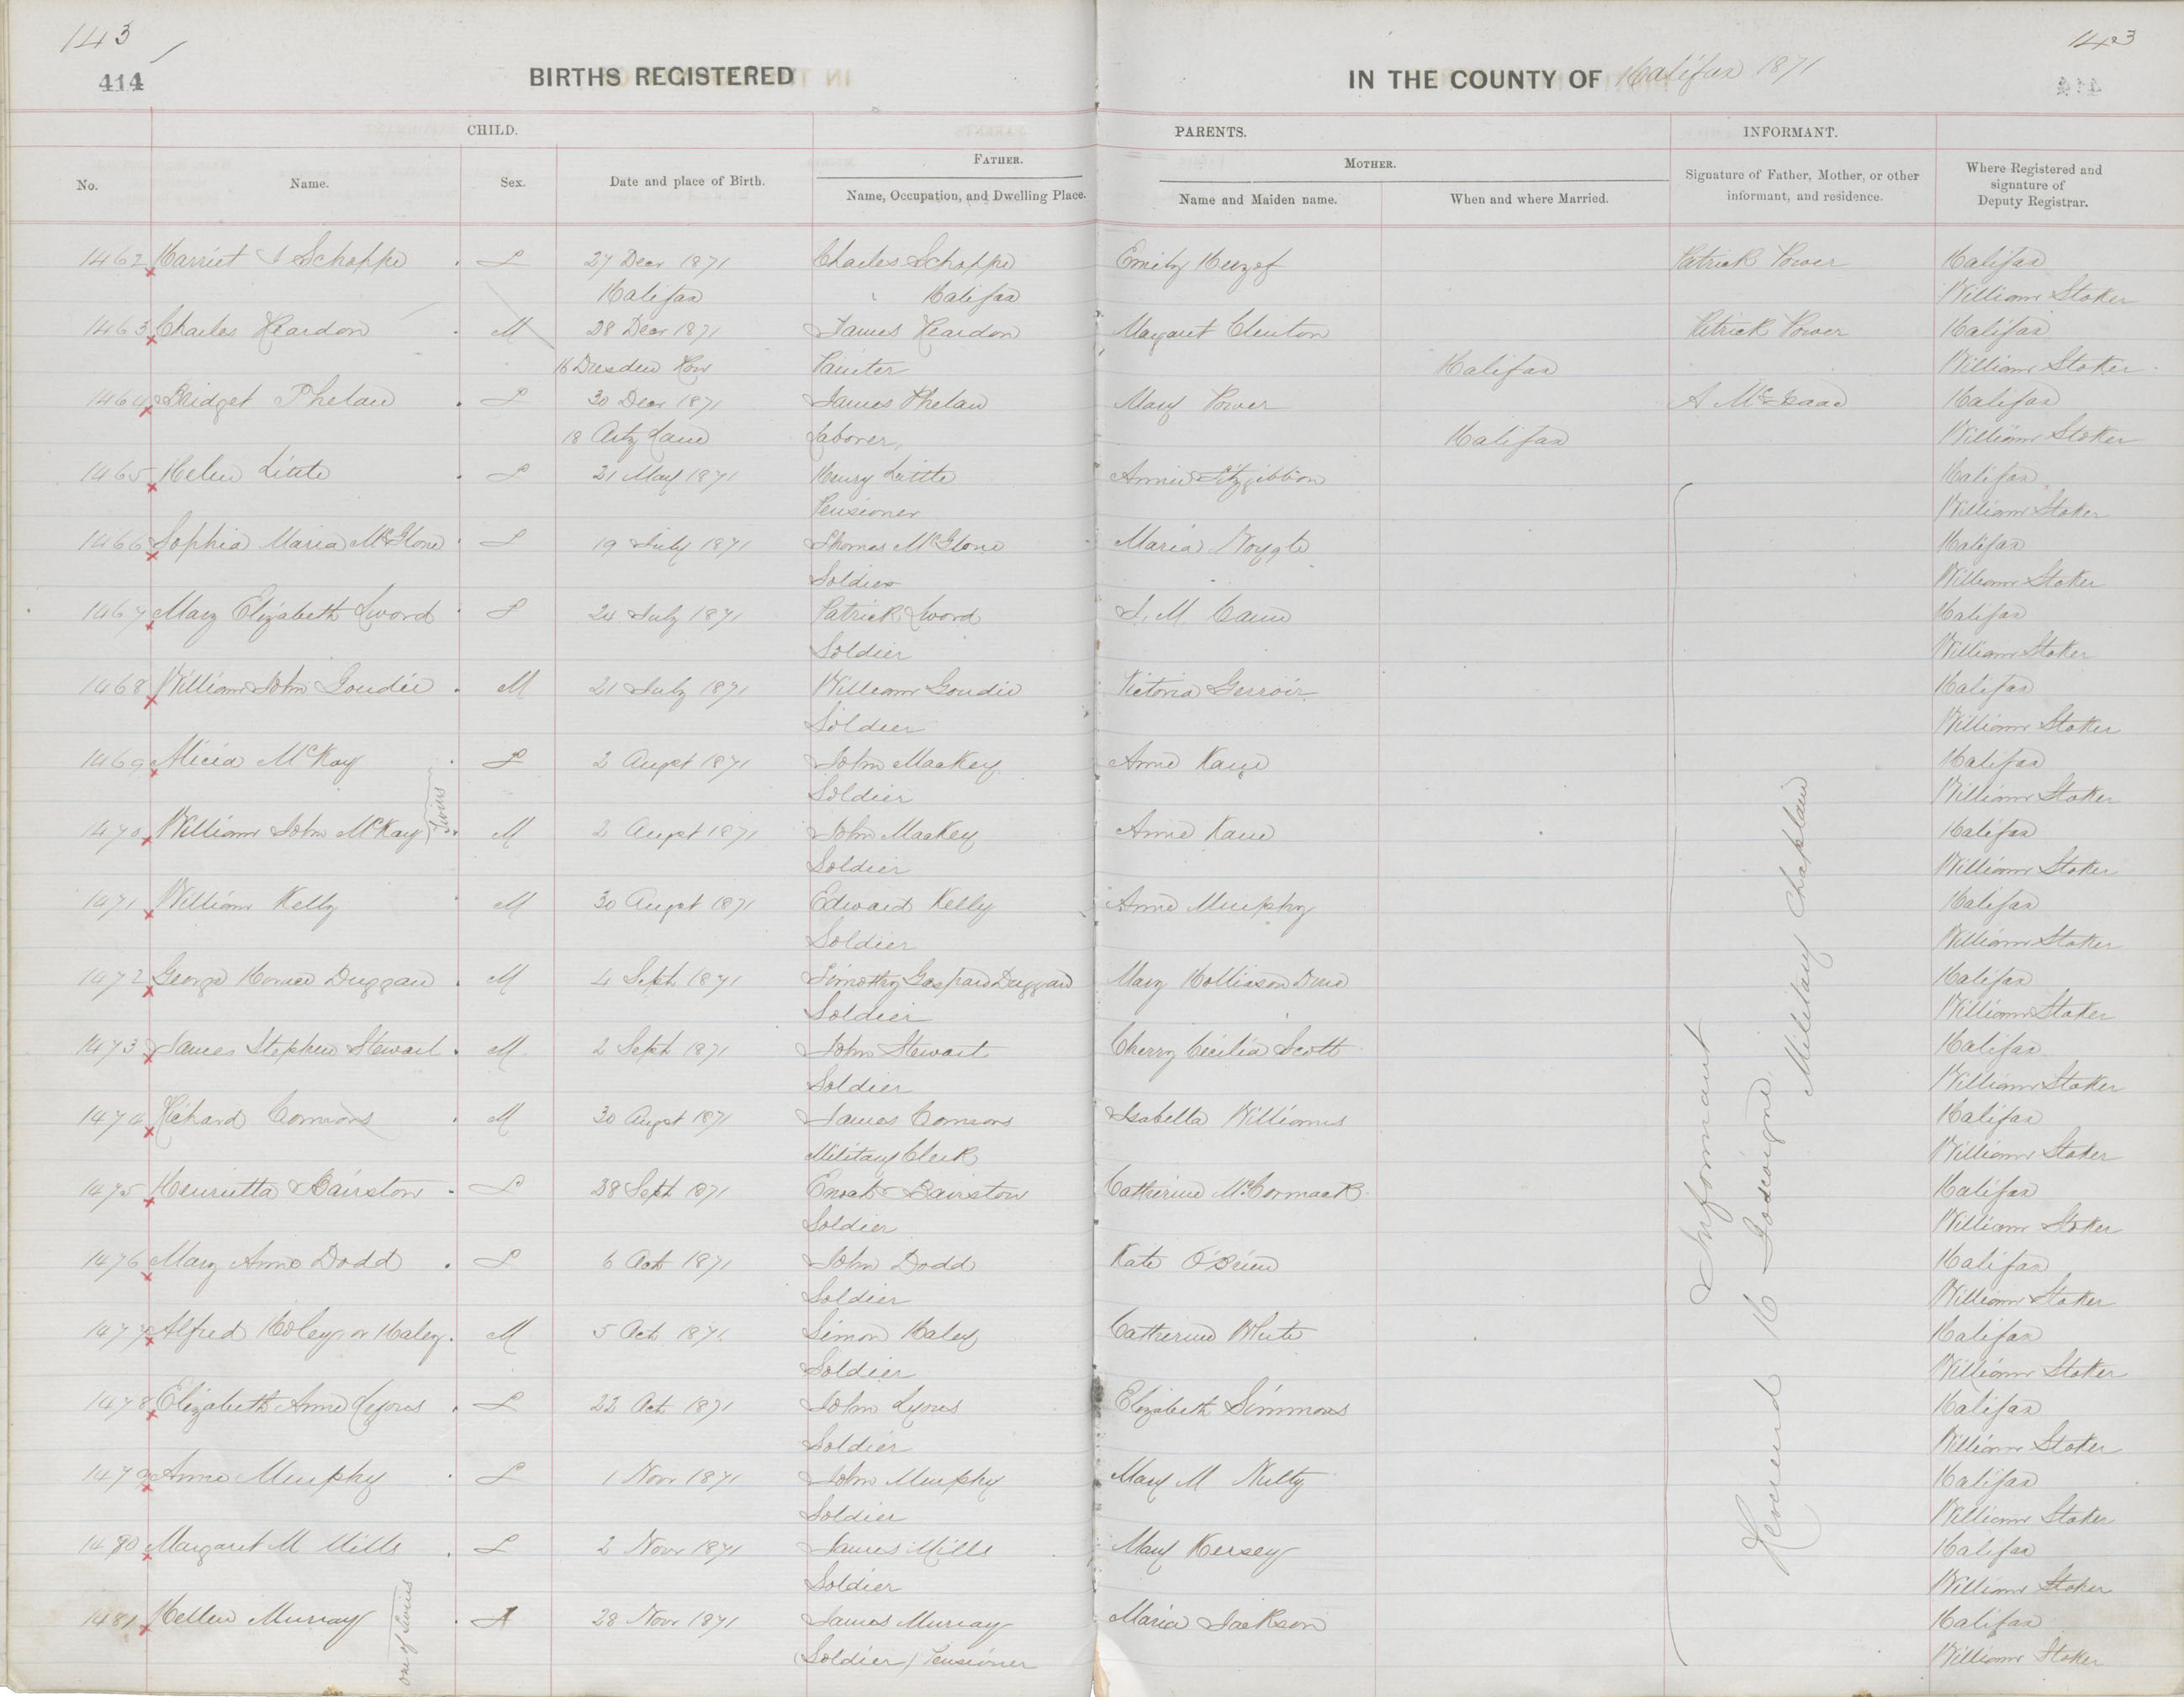 143
143
414
BIRTHS REGISTERED
IN THE COUNTY OF Halifax 1871
CHILD.
PARENTS.
INFORMANT.
No.
Name.
Sex.
Date and place of Birth.
FATHER.
Name, Occupation, and Dwelling Place.
MOTHER.
Name and Maiden name.
When and where Married.
Signature of Father, Mother, or other
informant, and residence.
Where Registered and
signature of
Deputy Registrar.
1462 Harriet J Schoppe F 27 Decr 1871 Charles Schoppe Emily Patrick Power Halifax
Halifax Halifax William Stoker
1463 Charles Reardon M 28 Decr 1871 James Reardon Margaret Clinton Patrick Power Halifax
16 Dresden Row Painter Halifax William Stoker
1464 Bridget Phelan F 30 Decr 1871 James Phelan Mary Power A McIsaac Halifax
18 Laborer Halifax William Stoker
1465 Helen Little F 21 May 1871 Henry Little Annie Fitzgibbon Halifax
Pensioner William Stoker
1466 Sophia Maria McGlone F 19 July 1871 Thomas McGlone Maria Halifax
Soldier William Stoker
1467 Mary Elizabeth F 24 July 1871 Patrick Halifax
Soldier William Stoker
1468 William John Goudie M 21 July 1871 William Goudie Victoria Gerroir Halifax
Soldier William Stoker
1469 Alicia McKay F 2 Augst 1871 John Mackey Anne Kane Halifax
Twins
Soldier William Stoker
1470 William John McKay M 2 Augst 1871 John Mackey Anne Kane Halifax
Soldier William Stoker
1471 William Kelly M 30 Augst 1871 Edward Kelly Anne Murphy Halifax
Soldier William Stoker
1472 George Horace Duggan M 4 Sept 1871 Timothy Duggan Mary Halifax
Soldier William Stoker
1473 James Stephen Stewart M 2 Sept 1871 John Stewart Cherry Cecilia Scott Halifax
Soldier William Stoker
1474 Richard Connors M 30 Augst 1871 James Connors Isabella Williams Halifax
Military Clerk William Stoker
1475 Henrietta Bairstow F 28 Sept 1871 Enoch Bairstow Catherine McCormack Halifax
Soldier William Stoker
1476 Mary Anne Dodd F 6 Oct 1871 John Dodd Kate O'Brien Halifax
Soldier William Stoker
1477 Alfred Holey or Haley M 5 Oct 1871 Simon Haley Catherine White Halifax
Soldier William Stoker
1478 Elizabeth Anne Lyons F 22 Oct 1871 John Lyons Elizabeth Simmons Halifax
Soldier William Stoker
1479 Anne Murphy F 1 Novr 1871 John Murphy Mary M Nulty Halifax
Soldier William Stoker
1480 Margaret M Mills F 2 Novr 1871 James Mills Mary Kersey Halifax
Soldier William Stoker
1481 Hellen Murray F 28 Novr 1871 James Murray Maria Jackson Halifax
one of Twins
(Soldier) Pensioner William Stoker
Informant
Reverend H
Military Chaplain